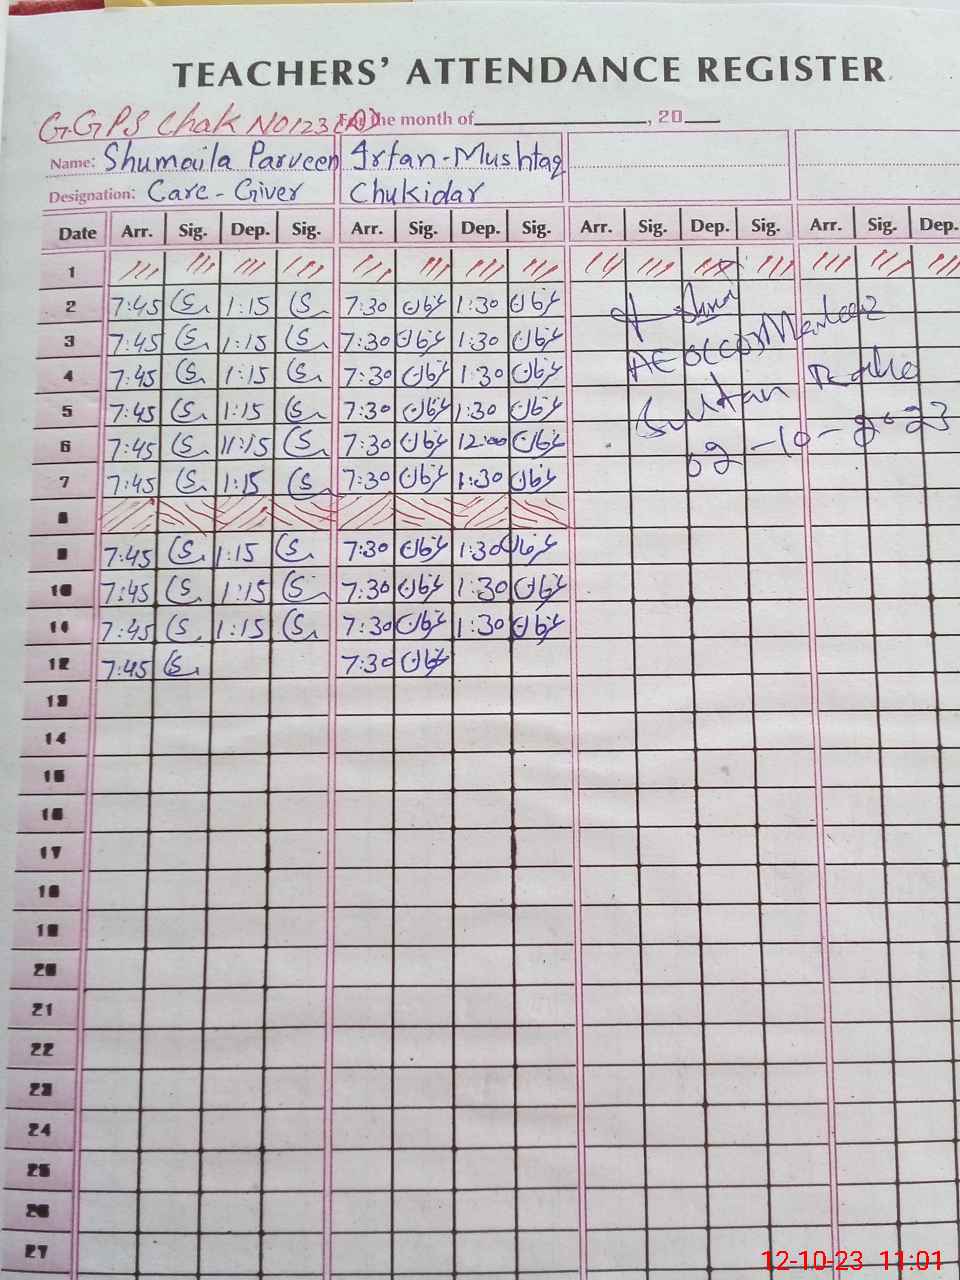 TEACHERS' ATTENDANCE REGISTER
G.GPS Chak NO123(A) For the month of , 20
Name: Shumaila Parveen Irfan-Mushtaq
Designation: Care-Giver Chukidar
Date Arr. Sig. Dep. Sig. Arr. Sig. Dep. Sig. Arr. Sig. Dep. Sig. Arr. Sig. Dep.
1
2 7:45 1:15 7:30 1:30
3 7:45 1:15 7:30 1:30
4 7:45 1:15 7:30 1:30
5 7:45 1:15 7:30 1:30
6 7:45 11:15 7:30 12:00
7 7:45 1:15 7:30 1:30
8
9 7:45 1:15 7:30 1:30
10 7:45 1:15 7:30 1:30
11 7:45 1:15 7:30 1:30
12 7:45 7:30
13
14
15
16
17
18
19
20
21
22
23
24
25
26
27
Sultan
02-10-2023
12-10-23 11:01